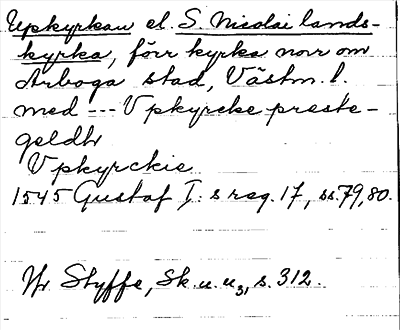 Upkyrkan el. S. Nicolai lands-
kyrka, förr kyrka norr om
Arboga stad, Västm. l.
med --- Vpkyrcke preste-
geldh
Vpkyrckie
1545 Gustaf I:s reg. 17, ss. 79, 80.
Jfr Styffe, Sk. u. u3, s. 312.